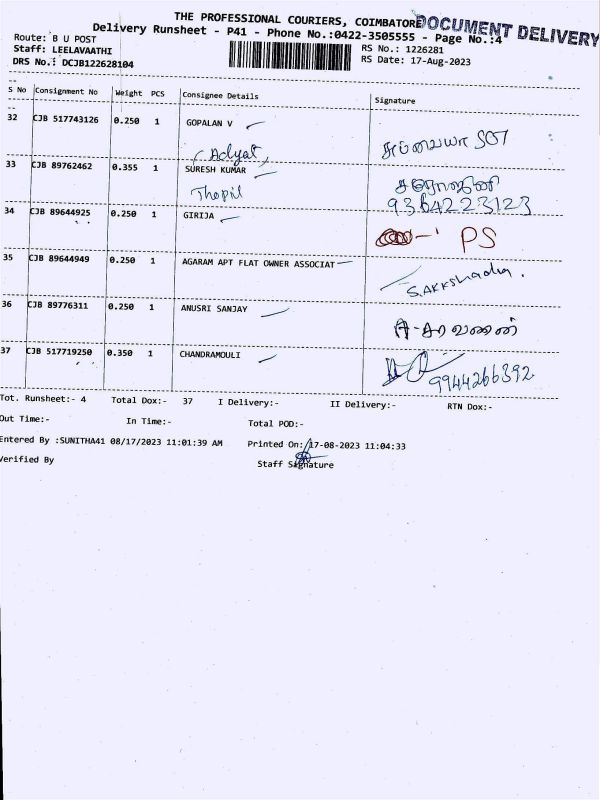 THE PROFESSIONAL COURIERS, COIMBATORE
DOCUMENT DELIVERY
Delivery Runsheet - P41 - Phone No.:0422-3505555 - Page No.:4
Route: B U POST
RS No.: 1226281
Staff: LEELAVAATHI
RS Date: 17-Aug-2023
DRS No.: DCJB122628104
S No Consignment No Weight PCS Consignee Details Signature
32 CJB 517743126 0.250 1 GOPALAN V
(Adyat)
33 CJB 89762462 0.355 1 SURESH KUMAR
Thopil சரோஜினி
9364223123
34 CJB 89644925 0.250 1 GIRIJA
PS
35 CJB 89644949 0.250 1 AGARAM APT FLAT OWNER ASSOCIAT
36 CJB 89776311 0.250 1 ANUSRI SANJAY
A-சரவணன்
37 CJB 517719250 0.350 1 CHANDRAMOULI
9944266392
Tot. Runsheet:- 4 Total Dox:- 37 I Delivery:- II Delivery:- RTN Dox:-
Out Time:- In Time:- Total POD:-
Entered By :SUNITHA41 08/17/2023 11:01:39 AM Printed On: 17-08-2023 11:04:33
Verified By Staff Signature